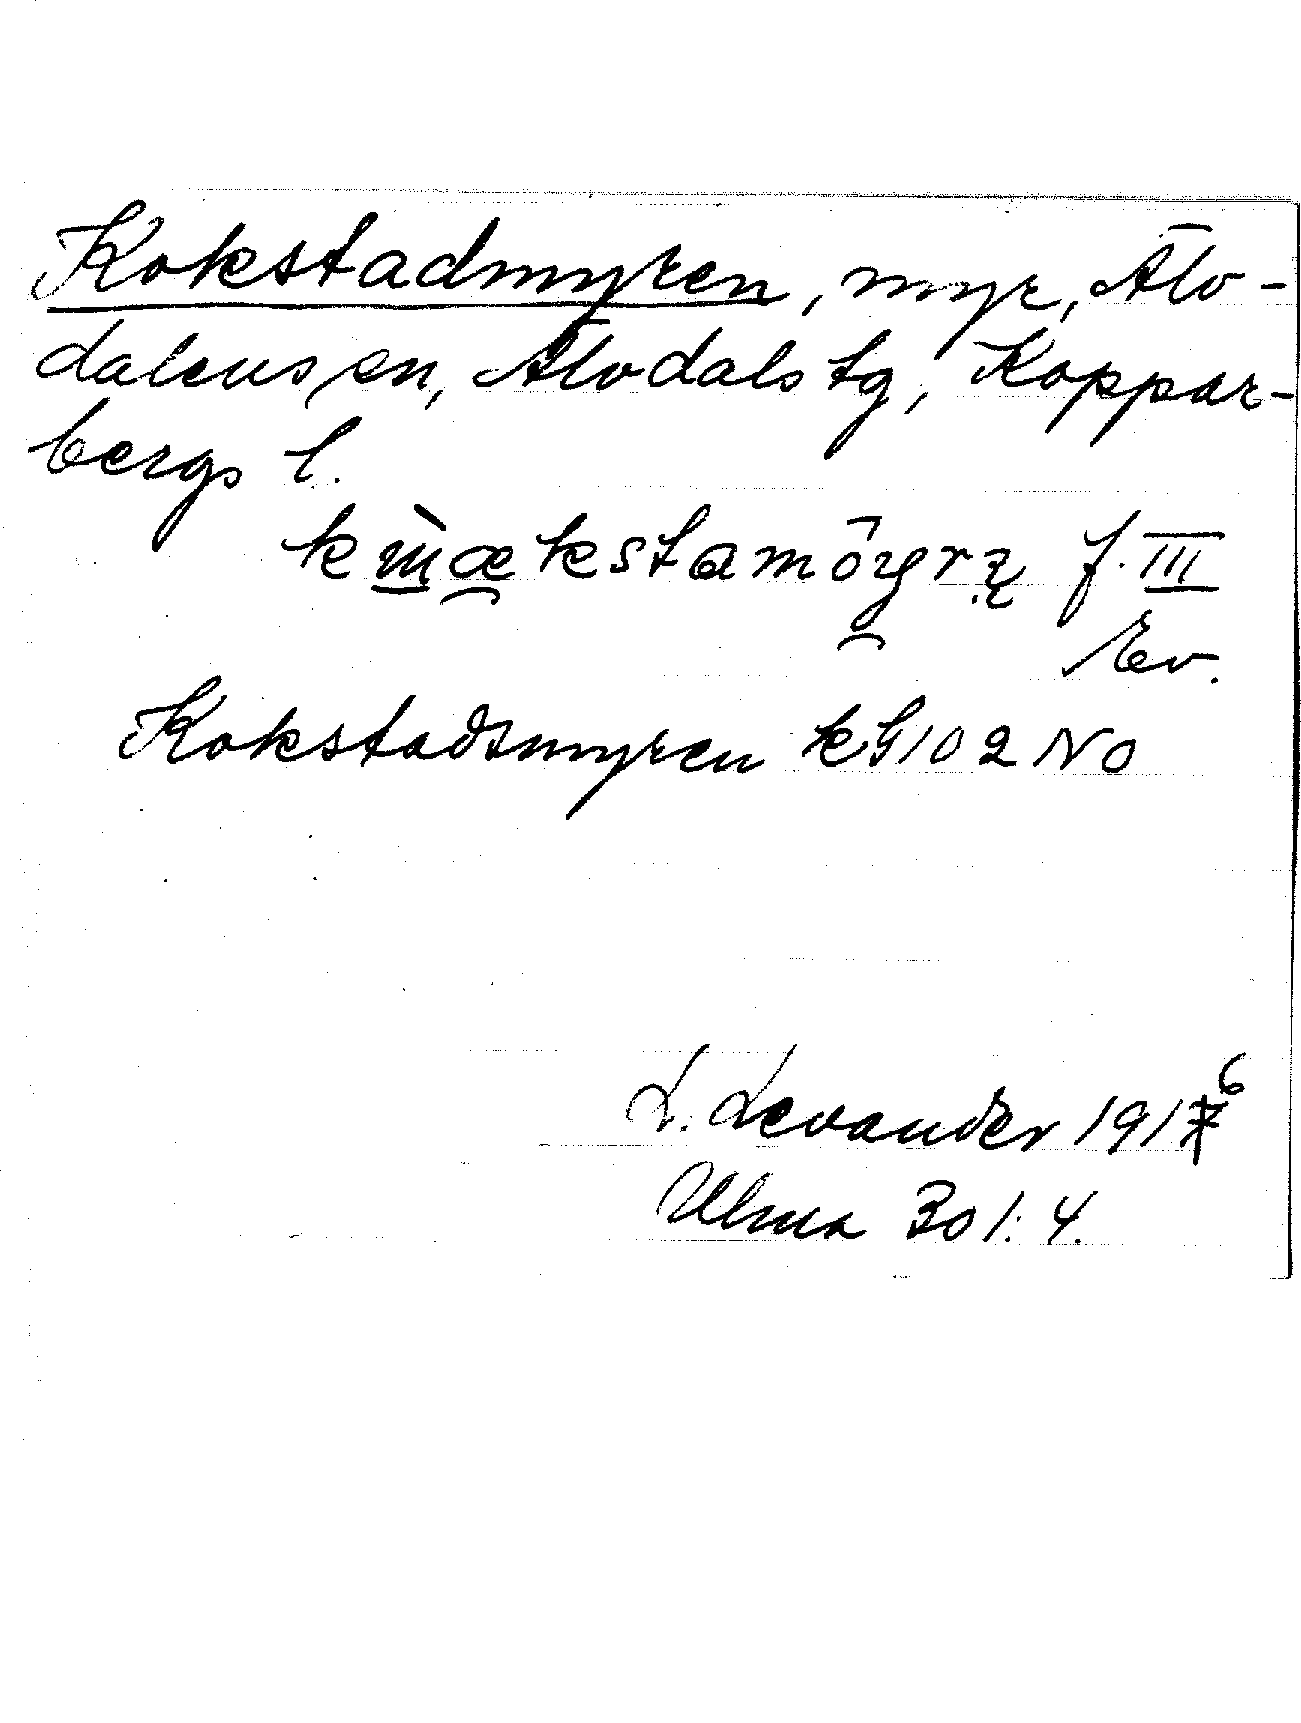 Kokstadmyren, myr, Älv-
dalens sn, Älvdals tg, Koppar-
bergs l.
f. III
Lev.
Kokstadsmyren kG 102 NO
L. Levander 1916
Ulma 301:4.